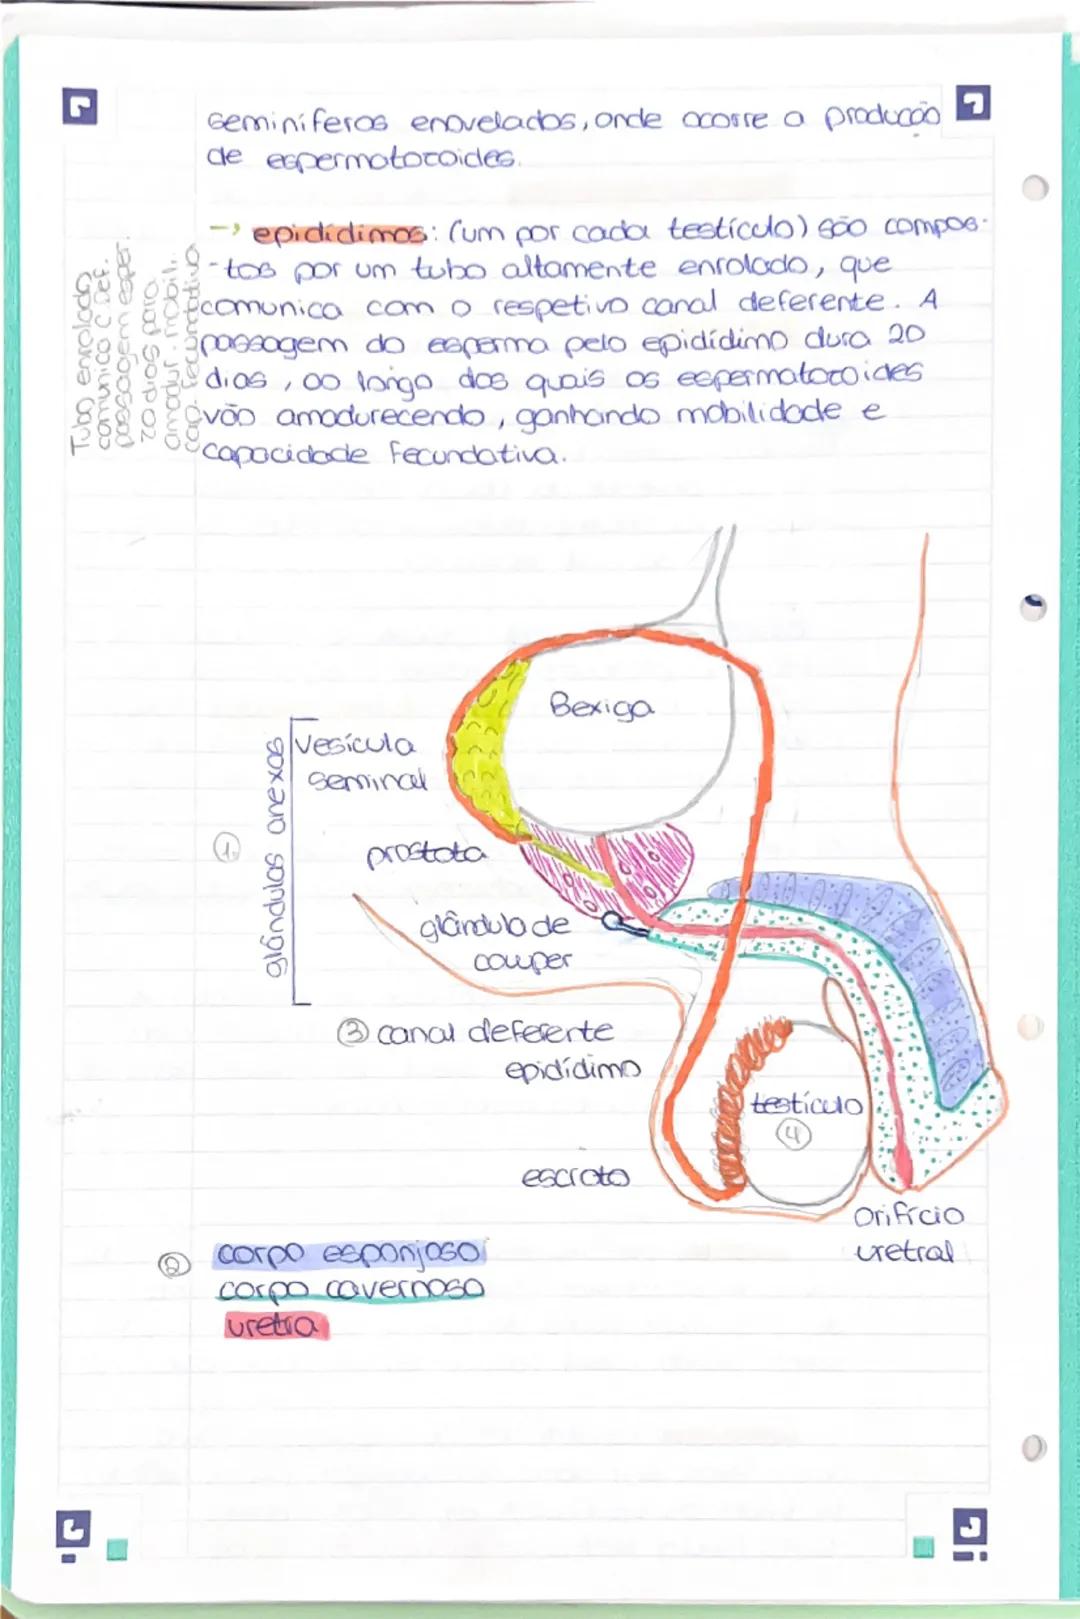 seminíferos enovelados, onde ocorre a produção
de espermatozoides.
→ epidídimos: (um por cada testículo) são compos-
-tos por um tubo altamente enrolado, que
comunica com o respetivo canal deferente. A
passagem do esperma pelo epidídimo dura 20
dias, ao longo dos quais os espermatozoides
vão amadurecendo, ganhando mobilidade e
capacidade fecundativa.
Tubo enrolado
comunica c Def.
passagem esper.
20 dias para
amadur. mobili.
cap. fecundativa
Bexiga
Vesícula
seminal
① glândulas anexas
prostata
glândula de
couper
③ canal deferente
epidídimo
testículo
④
escroto
Orifício
uretral
② corpo esponjoso
corpo cavernoso
uretra